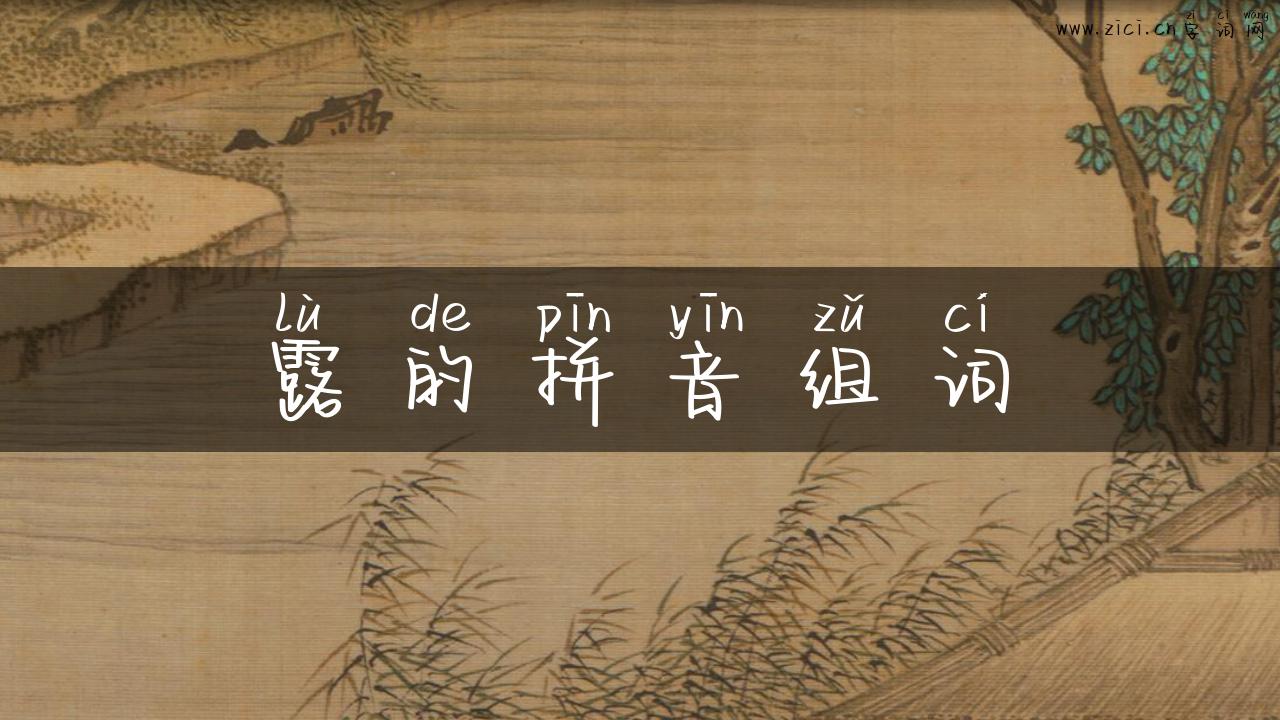 zì cí wǎng
www.zici.cn字词网
lù de pīn yīn zǔ cí
露的拼音组词